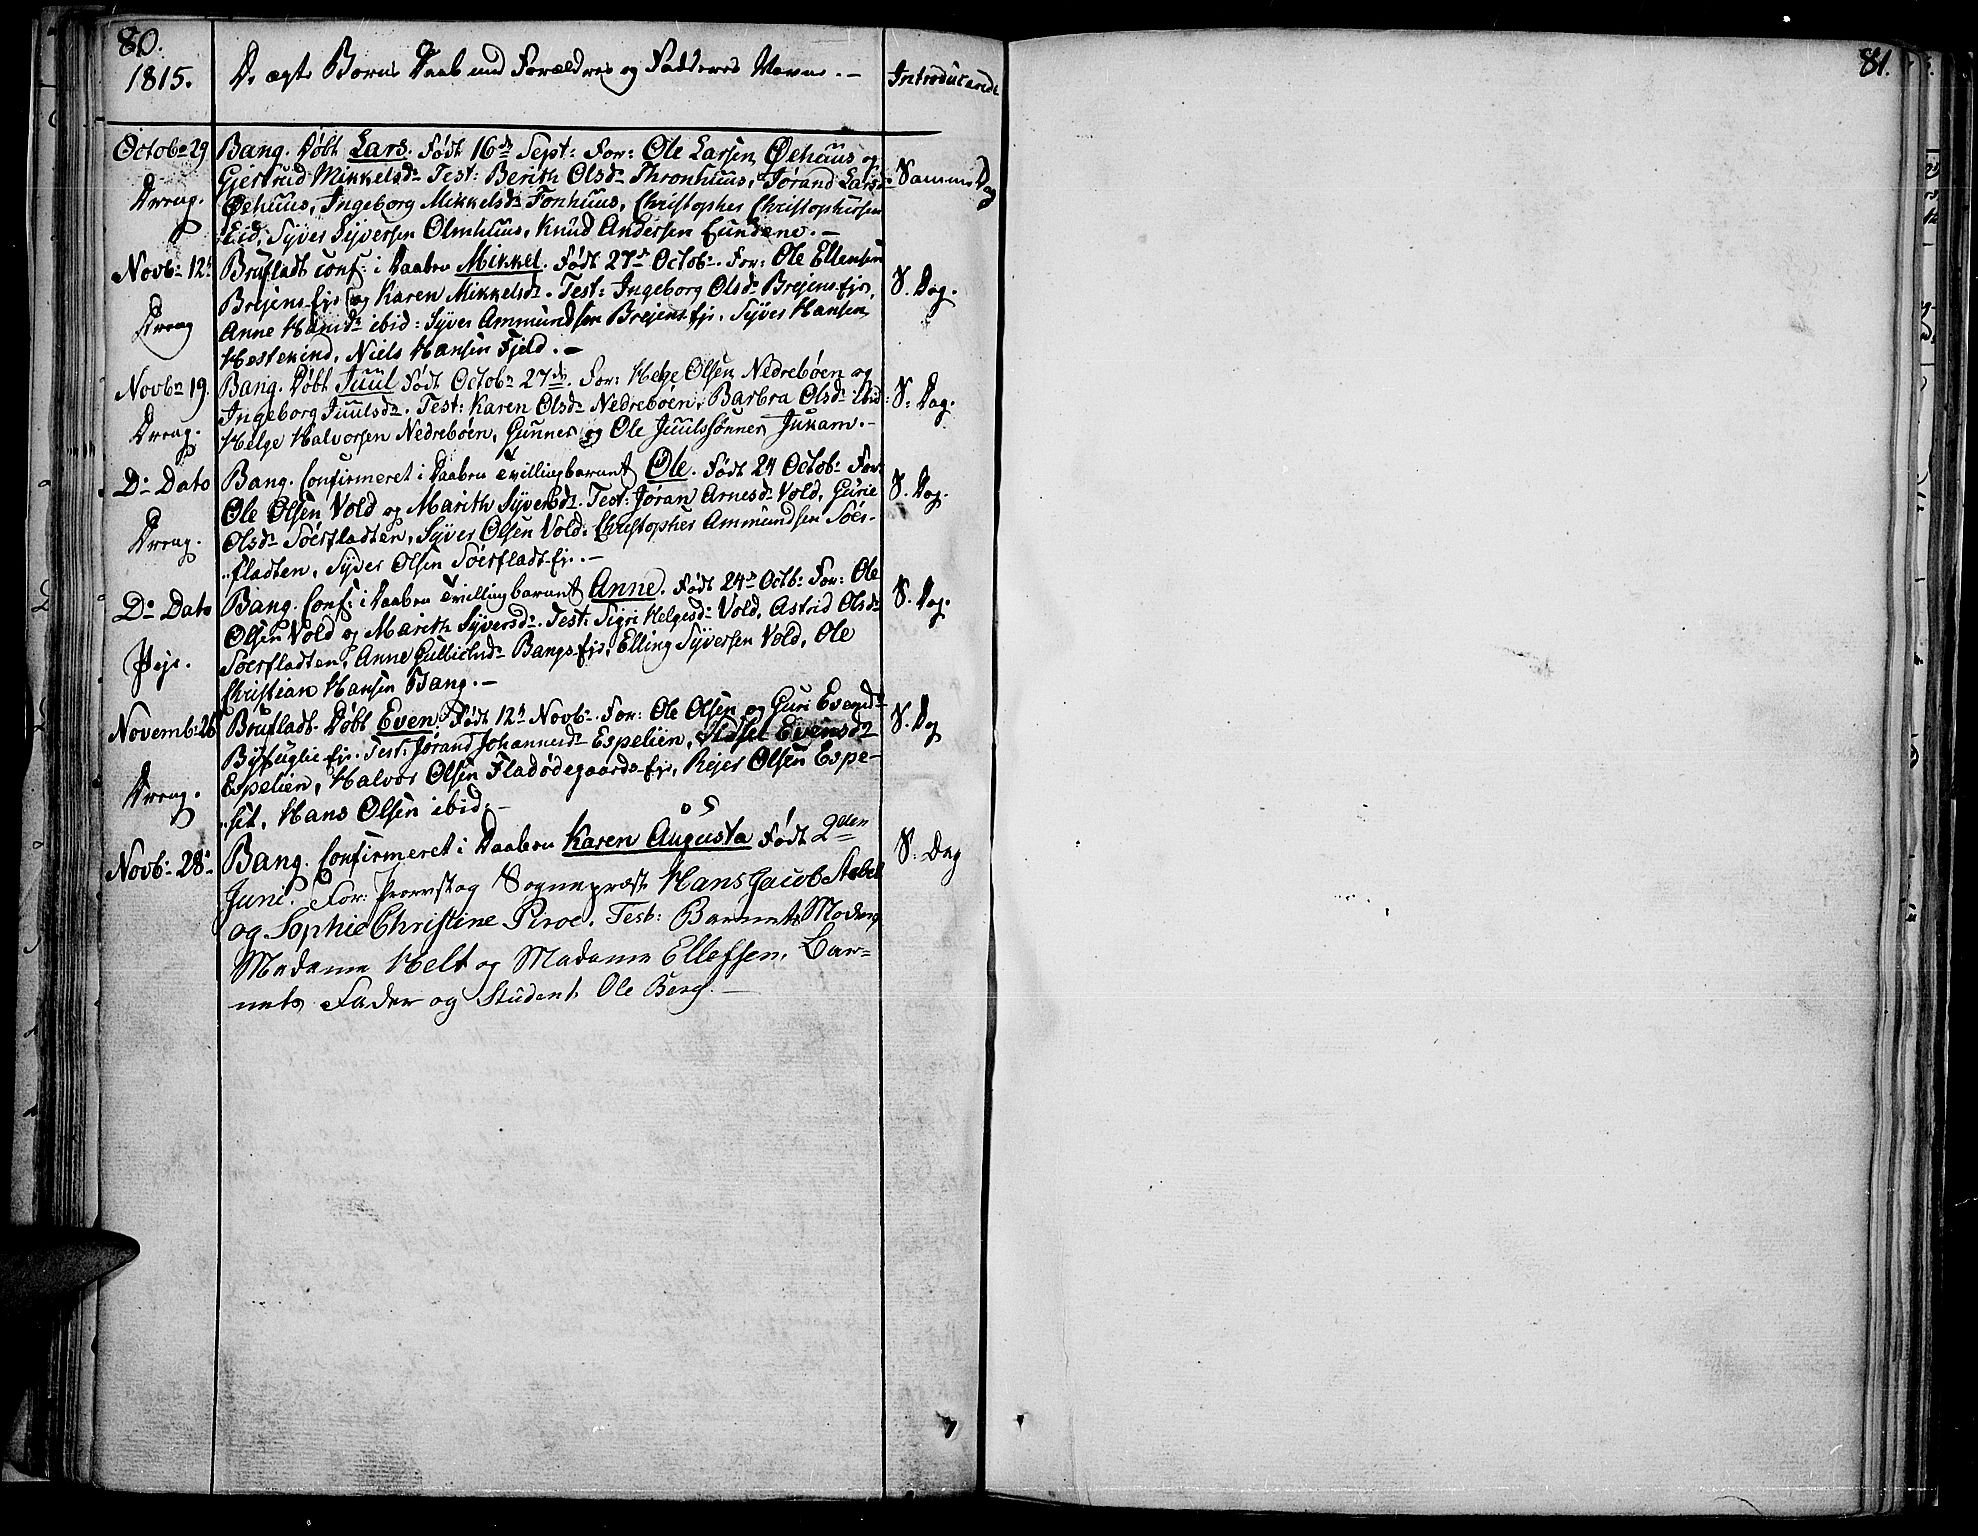 80.
1815. De ægte Børns Daab med Forældres og Fadderes Navne. — Introducerede
Octobr 29 Bang. Døbt Lars. Født 16de Sept: For: Ole Larsen Øehuus og
Gjertrud Mikkelsdr Test: Berith Olsdr Thronhuus, Jørand Larsdr Samme Dag
Dreng. Øehuus, Ingeborg Mikkelsdr Fonhuus, Christopher Christophersen
Eid, Syver Syversen Olmhuus, Knud Andersen Lundene. —
Novbr 12t Brufladt conf: i Daaben Mikkel. Født 27d Octobr. For: Ole Ellensen
Brejens-Ejr og Karen Mikkelsdr. Test: Ingeborg Olsdr Brejens-Ejr, S. Dag.
Dreng Anne Hansdr ibid: Syver Ammundsen Brejens-Ejr. Syver Hansen
Hestekind, Niels Hansen Fjeld. —
Novbr 19. Bang. Døbt Juul Født Octobr 27de. For: Helge Olsen Nedrebøen og
Ingeborg Juulsdr. Test: Karen Olsdr Nedrebøen, Barbra Olsdr ibid: S: Dag.
Dreng. Helge Halvorsen Nedrebøen, Gunner og Ole Juulssønner Jukam. —
Do Dato Bang. Confirmeret i Daaben Tvillingbarnet Ole. Født 24 Octobr For:
Ole Olsen Vold og Marith Syversdr. Test: Jøran Arnesdr Vold, Gurie S. Dag.
Dreng. Olsdr Sørfladten, Syver Olsen Vold, Christopher Ammundsen Søer-
fladten, Syver Olsen Søerfladt-Ejr. —
Do Dato Bang. Conf: i Daaben Tvillingbarnet Anne. Født 24d Octb: For: Ole S. Dag.
Olsen Vold og Marith Syversdr. Test: Sigri Helgesdr Vold, Astrid Olsdr
Pige. Søerfladten, Anne Gulbrandsdr Bangs-Ejr, Elling Syversen Vold, Ole
Christian Hansen Bang. —
Novemb: 26 Brufladt. Døbt Even Født 12t Novbr. For: Ole Olsen og Guri Evensdr S. Dag
Byfuglie-Ejr. Test: Jørand Johannesdr Espelien, Sidsel Evensdr
Dreng. Espelien, Halvor Olsen Fladødegaards-Ejr, Rejer Olsen Espe-
set, Hans Olsen ibid: —
Novb: 28 Bang. Confirmeret i Daaben Karen Augusta Født 2den S: Dag
Juni. For: Provst og Sognepræst Hans Jacob Stabel
og Sophie Christine Piroe. Test: Barnets Moder,
Madame Helt og Madame Ellefsen, Bar-
nets Fader og Student Ole Berg. —
81.